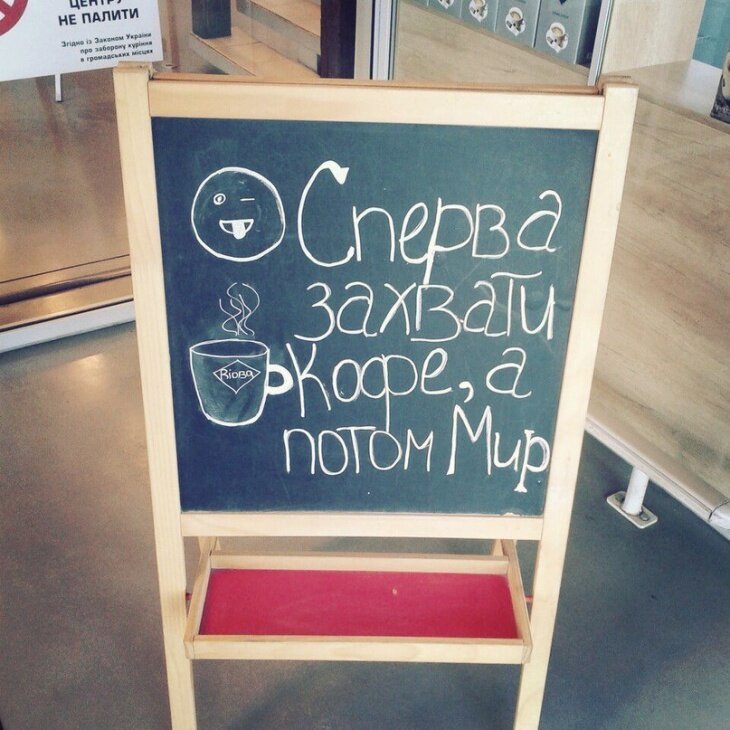 ЦЕНТРУ
НЕ ПАЛИТИ
Згідно із Законом України
про заборону куріння
в громадських місцях
Сперва
захвати
Кофе, а
потом Мир
Rioba